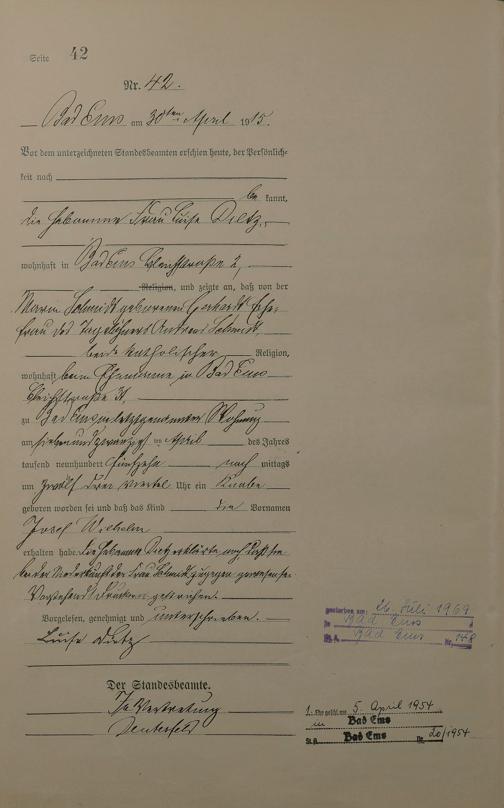 Seite 42
Nr. 42.
Bad Ems am 30ten April 1915.
Vor dem unterzeichneten Standesbeamten erschien heute, der Persönlich-
keit nach
be kannt,
die Hebamme Frau Luise Dietz,
wohnhaft in Bad Ems Bleichstraße 2,
Religion, und zeigte an, daß von der
Maria Schmidt geborenen Gerhardt Ehe-
frau des Tagelöhners Andreas Schmidt,
beide katholischer Religion,
wohnhaft beim Ehemanne in Bad Ems
zu Bad Ems in letztgenannter Wohnung
am siebenundzwanzigsten April des Jahres
tausend neunhundert fünfzehn nach mittags
um zwölf drei viertel Uhr ein Knabe
geboren worden sei und daß das Kind die Vornamen
Josef Wilhelm
erhalten habe. Die Hebamme Dietz erklärte noch daß sie
bei der Niederkunft der Frau Schmidt zugegen gewesen sei.
Vorstehend Druckworte gestrichen.
Vorgelesen, genehmigt und unterschrieben.
Luise Dietz
Der Standesbeamte.
In Vertretung
gestorben am: 26. Juli 1969
in Bad Ems
St.A. Bad Ems Nr. 148
1. Ehe geschl. am 5. April 1954
in Bad Ems
St.A. Bad Ems Nr. 20/1954